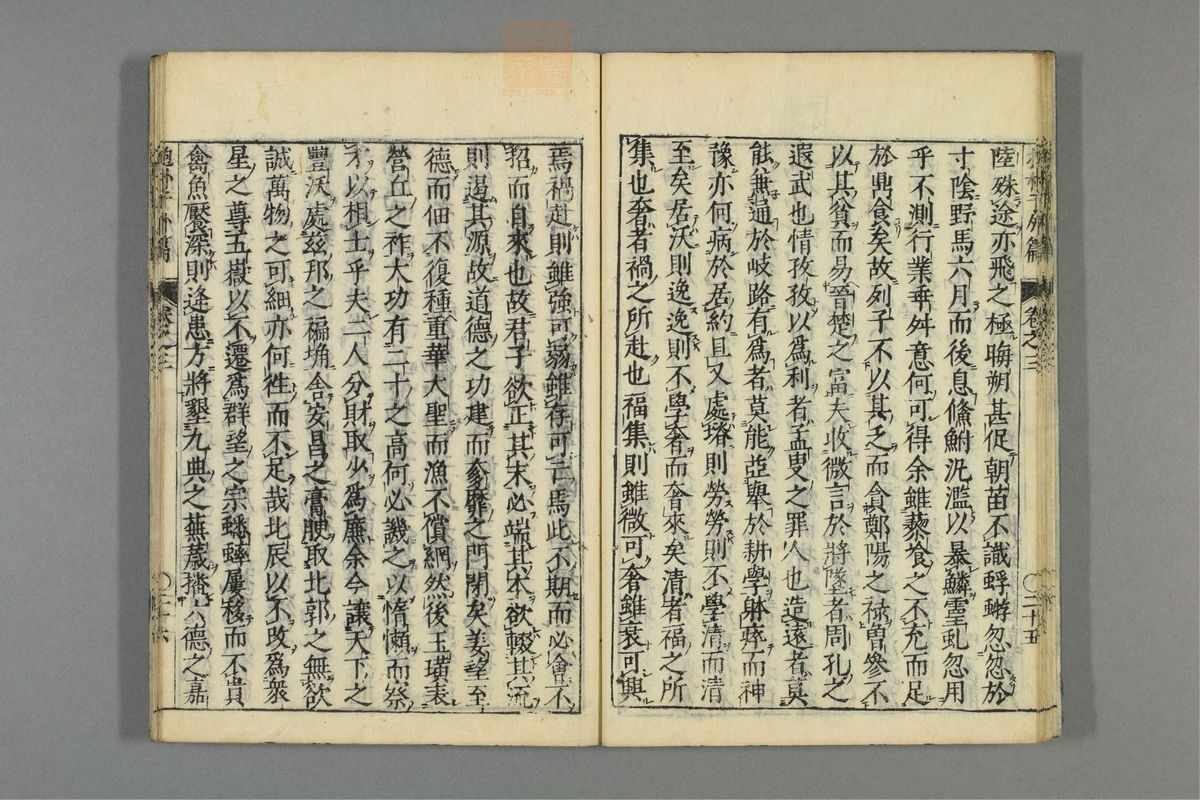 陸殊途亦飛之極晦朔甚促朝菌不識蜉蝣忽忽於
寸陰野馬六月而後息鯈鮒汎濫以暴鱗靈虬忽用
乎不測行業乖舛意何可得余雖藜飡之不充而足
於鼎食矣故列子不以其乏而貪鄭陽之祿曾參不
以其貧而易晉楚之富夫收微言於將墜者周孔之
遐武也情孜孜以爲利者孟叟之罪人也造遠者莫
能兼通於岐路有爲者莫能並舉於耕學躰瘁而神
豫亦何病於居約且又處瘠則勞勞則不學清而清
至矣居沃則逸逸則不學奢而奢來矣清者福之所
集也奢者禍之所赴也福集則雖微可奢雖衰可興
焉禍赴則雖強可弱雖存可亡焉此不期而必會不
招而自來也故君子欲正其末必端其本欲輟其流
則遏其源故道德之功建而豸靡之門閉矣姜望至
德而佃不復種重華大聖而漁不償網然後玉璜表
營丘之祚大功有二十之高何必譏之以惰懶而察
才以相士乎夫二人分財取少爲廉余今讓天下之
豐沃處兹邦之褊埆舍安昌之膏腴取北郭之無欲
誠萬物之可細亦何徃而不足哉北辰以不改爲衆
星之尊五嶽以不遷爲群望之宗蟋蟀屢移而不貴
禽魚饜深則逢患方將墾九典之蕪薉播六德之嘉
卷之三
二十五
卷之三
二十六